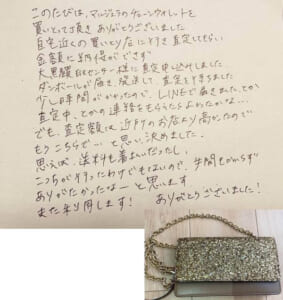 このたびは、マルジェラのチェーンウォレットを
買いとって頂き ありがとうございました
自宅近くの買いとり店に行き査定してもらい
金額に納得ができず
大黒屋質センター様に査定申し込みしました
ダンボールが届き、発送して、査定を待ちました
少し時間がかかったので、LINEで届きました、とか
査定中、とかの連絡をもらえたらよかったかな…
でも、査定額は近所のお店より高かったので
もうこちらで…と思い決めました。
思えば、送料も着払いだったし、
こっちが行ったわけでもないので、手間もかからず
ありがたかったなーと思います
また利用します！
ありがとうございました！